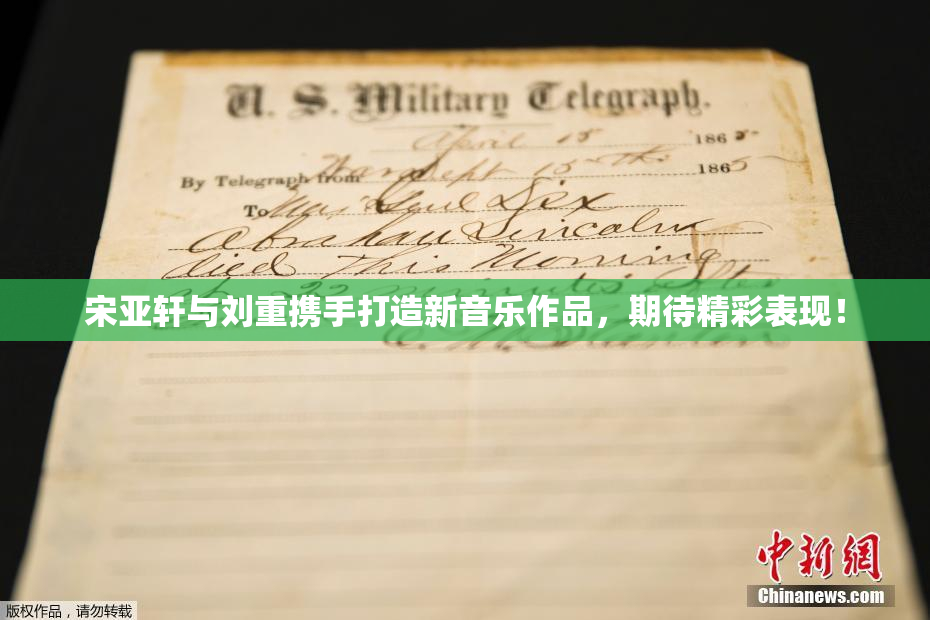 U. S. Military Telegraph.
April 15 1865
By Telegraph from War Dept 15th 1865
To Maj Genl Dix
Abraham Lincoln
died This Morning
at 22 minutes after
宋亚轩与刘重携手打造新音乐作品，期待精彩表现！
E. M. Stanton
中新網
Chinanews.com
版权作品，请勿转载